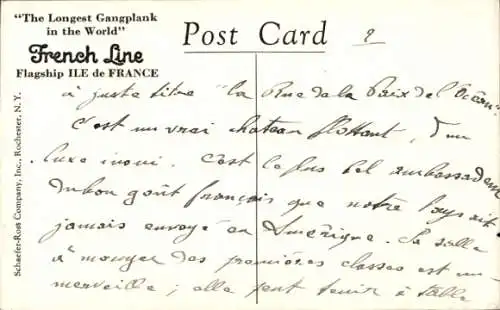 "The Longest Gangplank
in the World"
French Line
Flagship ILE de FRANCE
Post Card
2
à juste titre "la Rue de la Paix de l'Océan."
C'est un vrai chateau flottant, d'un
luxe inoui. C'est le plus bel ambassadeur
du bon goût français que notre pays ait
jamais envoyé en Amérique. La salle
à manger des premières classes est une
merveille ; elle peut tenir à table
Schaefer-Ross Company, Inc., Rochester, N. Y.